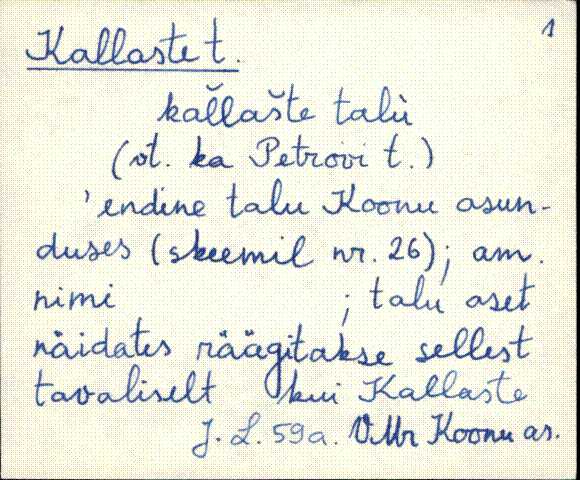 1
Kallaste t.
kăllašte talù
(vt. ka Petrovi t.)
'endine talu Koonu asun-
duses (skeemil nr. 26); am.
nimi ; talu aset
näidates räägitakse sellest
tavaliselt kui Kallaste
J. L. 59a. VMr Koonu as.